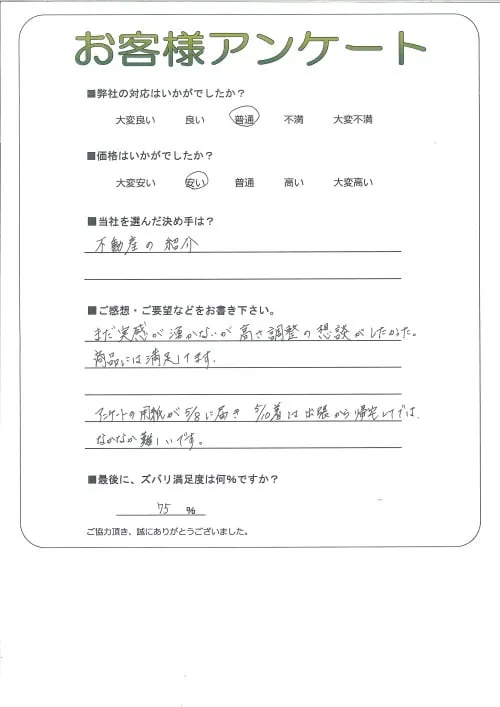 お客様アンケート
■弊社の対応はいかがでしたか？
大変良い 良い 普通 不満 大変不満
■価格はいかがでしたか？
大変安い 安い 普通 高い 大変高い
■当社を選んだ決め手は？
不動産の紹介
■ご感想・ご要望などをお書き下さい。
まだ実感が湧かないが高さ調整の想談がしたかった。
商品には満足してます．
アンケートの用紙が5/8に届き 5/10着は出張から帰宅してでは、
なかなか難しいです。
■最後に、ズバリ満足度は何%ですか？
75 %
ご協力頂き、誠にありがとうございました。